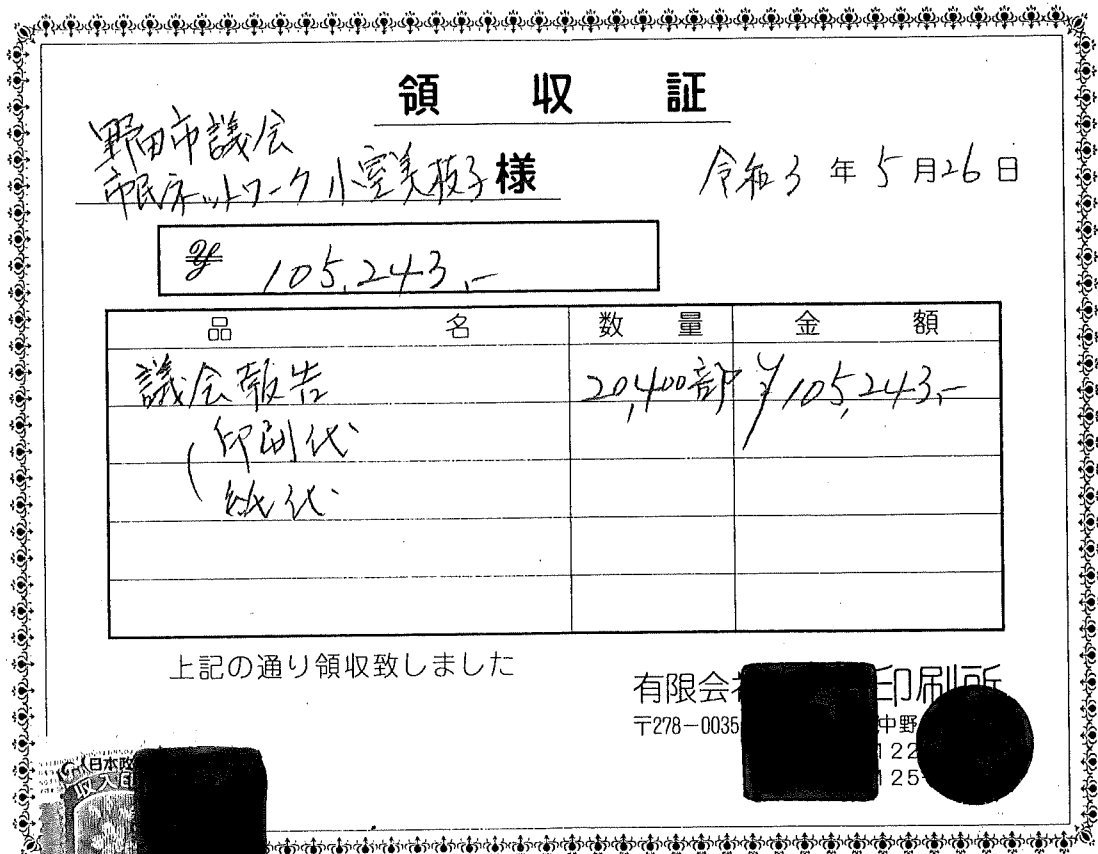 領収証
野田市議会
市民ネットワーク 小室美枝子 様
令和3年5月26日
¥ 105,243.-
品名 数量 金額
議会報告 20,400部 ¥105,243.-
印刷代
紙代
上記の通り領収致しました
有限会社 印刷所
〒278-0035 中野
122
125
日本政
収入印